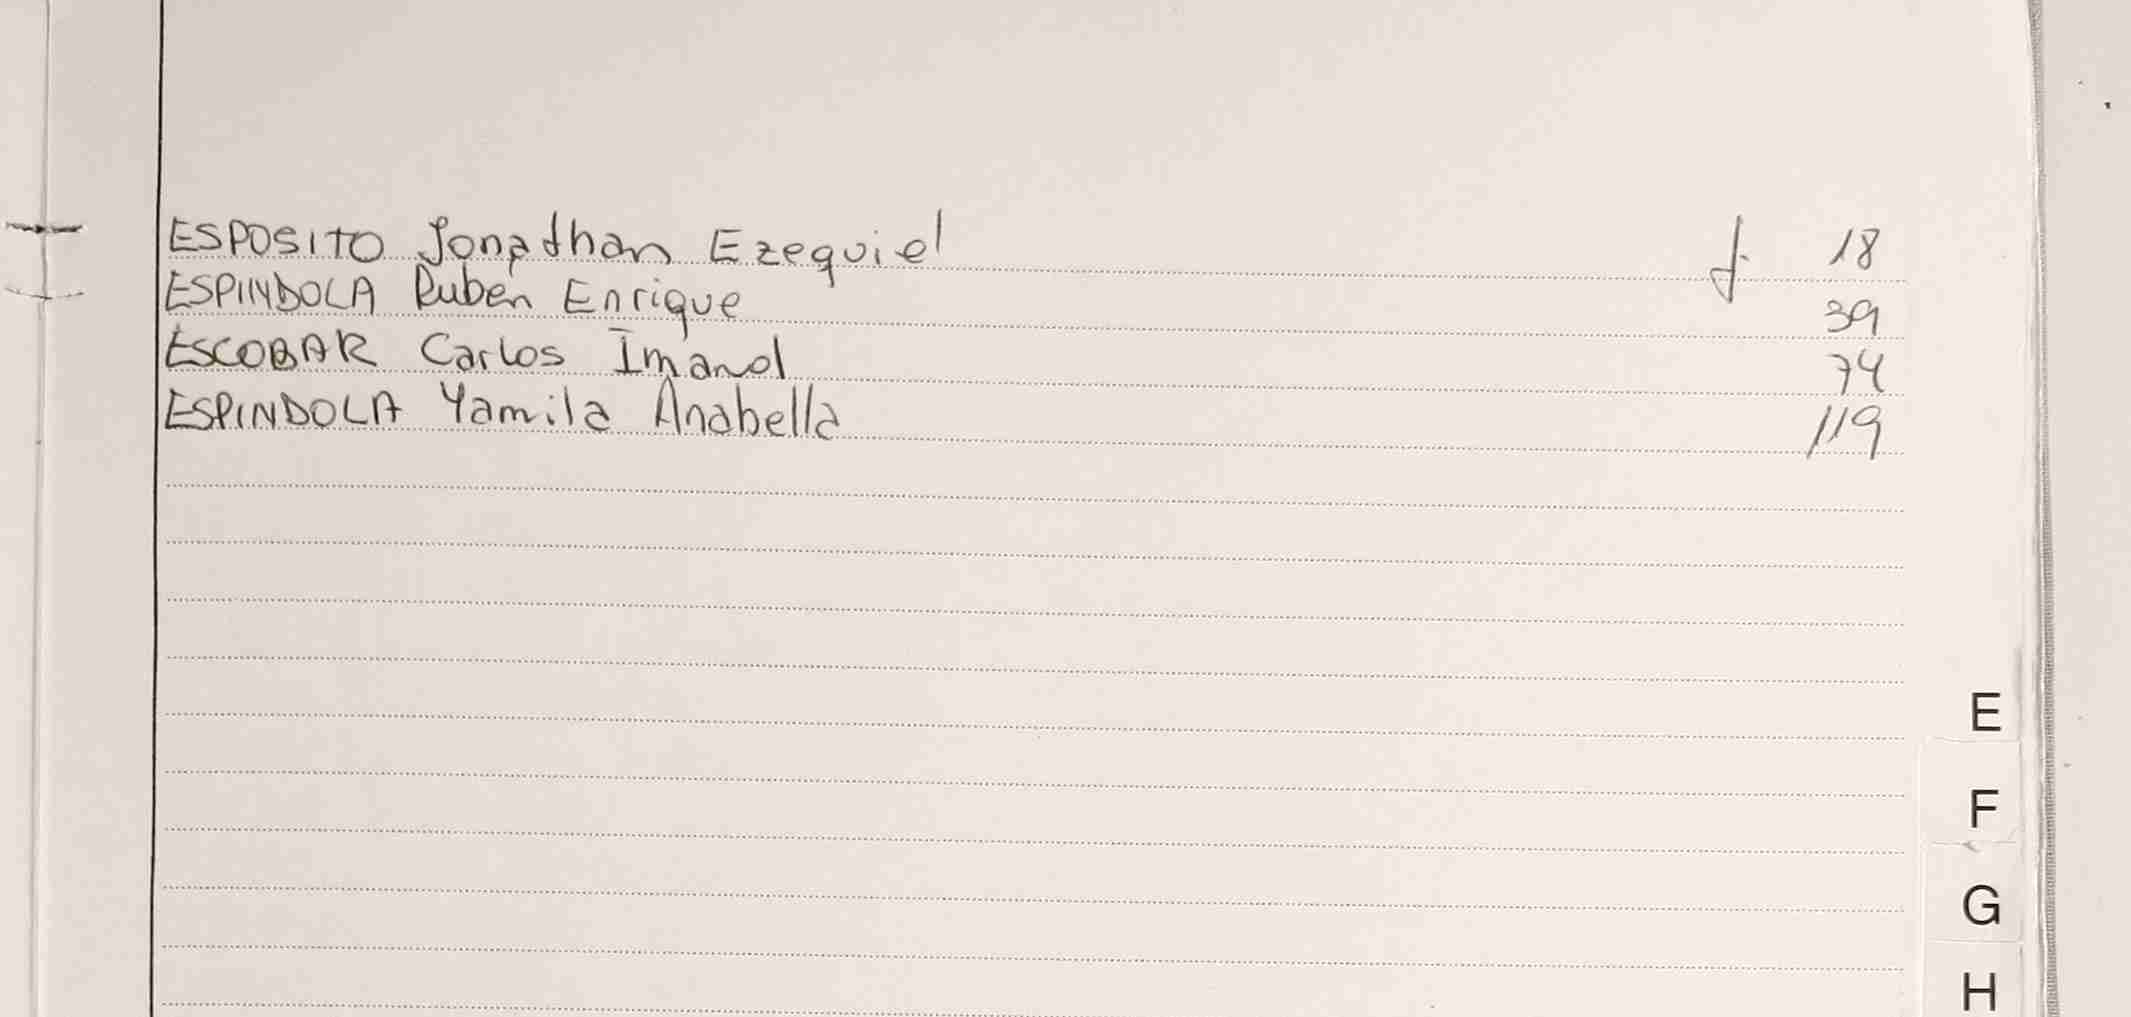 ESPOSITO Jonathan Ezequiel f. 18
ESPINDOLA Ruben Enrique 39
ESCOBAR Carlos Imanol 74
ESPINDOLA Yamila Anabella 119
E
F
G
H